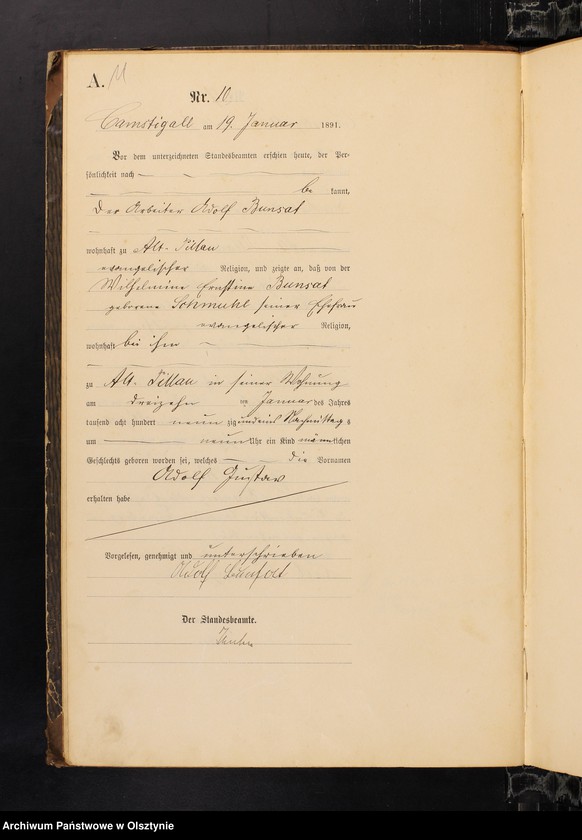 A. 11
Nr. 10
Camstigall am 19. Januar 1891.
Vor dem unterzeichneten Standesbeamten erschien heute, der Per-
sönlichkeit nach
be kannt,
der Arbeiter Adolf Bunsat
wohnhaft zu Alt-Pillau
evangelischer Religion, und zeigte an, daß von der
Wilhelmine Ernstine Bunsat
geborene Schmuhl seiner Ehefrau
evangelischer Religion,
wohnhaft bei ihm
zu Alt-Pillau in seiner Wohnung
am dreizehn ten Januar des Jahres
tausend acht hundert neun zig und eins Nachmittags
um neun Uhr ein Kind männlichen
Geschlechts geboren worden sei, welches die Vornamen
Adolf Gustav
erhalten habe
Vorgelesen, genehmigt und unterschrieben
Adolf
Der Standesbeamte.
Archiwum Państwowe w Olsztynie